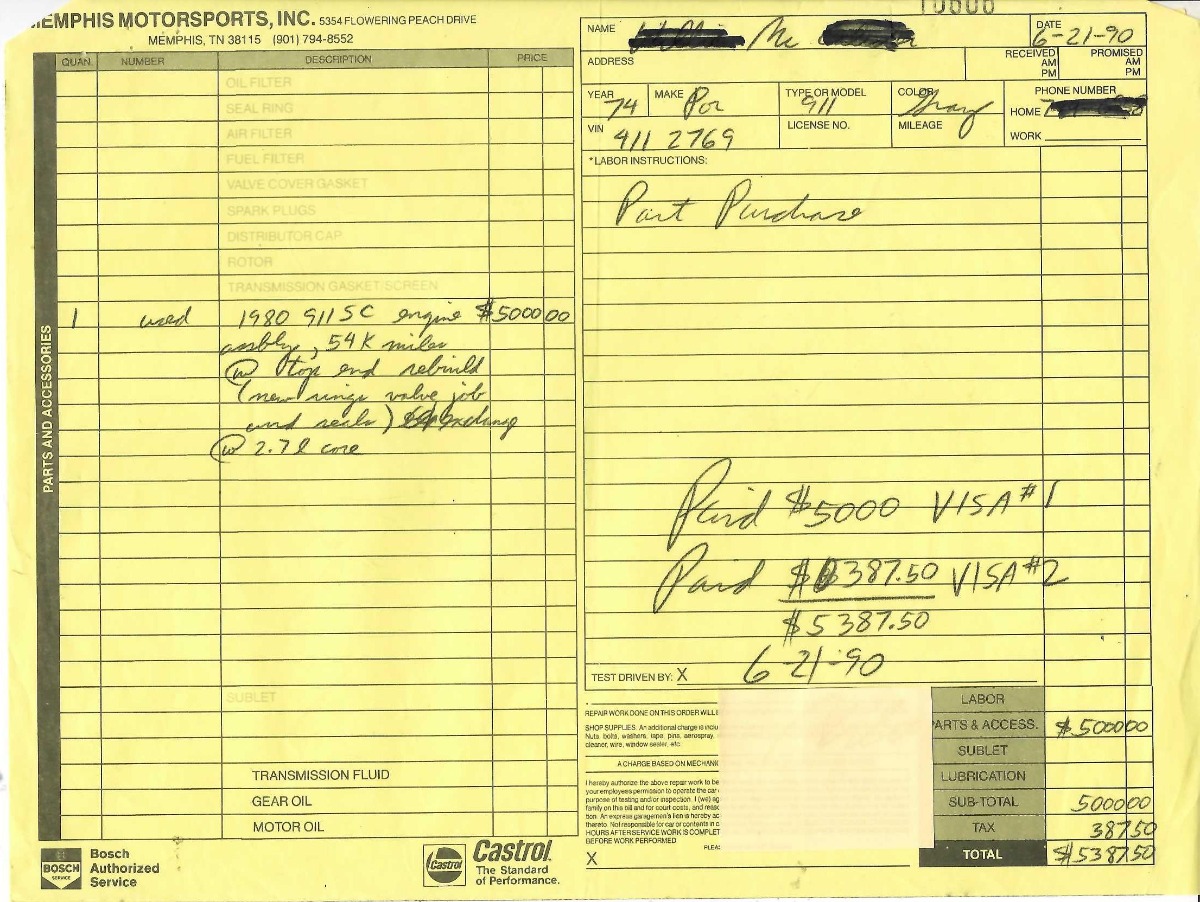 MEMPHIS MOTORSPORTS, INC. 5354 FLOWERING PEACH DRIVE
MEMPHIS, TN 38115 (901) 794-8552
QUAN. NUMBER DESCRIPTION PRICE
OIL FILTER
SEAL RING
AIR FILTER
FUEL FILTER
VALVE COVER GASKET
SPARK PLUGS
DISTRIBUTOR CAP
ROTOR
TRANSMISSION GASKET/SCREEN
1 used 1980 911SC engine $5000 00
assbly, 54K miles
@w top end rebuild
(new rings valve job
and seals) exchange
@w 2.7 l core
PARTS AND ACCESSORIES
SUBLET
TRANSMISSION FLUID
GEAR OIL
MOTOR OIL
BOSCH
SERVICE
Bosch
Authorized
Service
Castrol
Castrol
The Standard
of Performance.
NAME Mc
DATE
6-21-90
ADDRESS
RECEIVED
AM
PM
PROMISED
AM
PM
YEAR 74 MAKE Por TYPE OR MODEL 911 COLOR Gray
PHONE NUMBER
HOME
WORK
VIN 411 2769 LICENSE NO. MILEAGE
*LABOR INSTRUCTIONS:
Part Purchase
Paid $5000 VISA #1
Paid $387.50 VISA #2
$5387.50
6-21-90
TEST DRIVEN BY: X
REPAIR WORK DONE ON THIS ORDER WILL
SHOP SUPPLIES. An additional charge is
Nuts, bolts, washers, tape, pins, aerospray,
cleaner, wire, window sealer, etc.
A CHARGE BASED ON
I hereby authorize the above repair work to be
your employees permission to operate the car
purpose of testing and/or inspection. I (we)
family on this bill and for court costs, and
tion. An express garagemen's lien is hereby
thereto. Not responsible for car or contents in
HOURS AFTER SERVICE WORK IS
BEFORE WORK PERFORMED
X
LABOR
PARTS & ACCESS. $5000 00
SUBLET
LUBRICATION
SUB-TOTAL 5000 00
TAX 387 50
TOTAL $5387 50